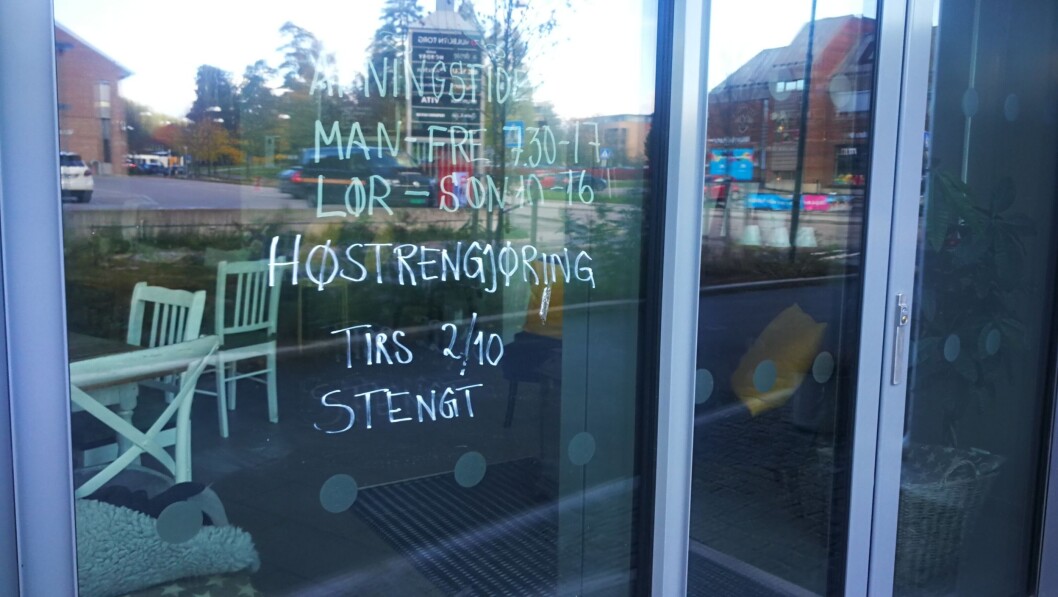 ÅPNINGSTIDER
MAN-FRE 7.30-17
LØR - SØN 10-16
HØSTRENGJØRING
TIRS 2/10
STENGT
VITA